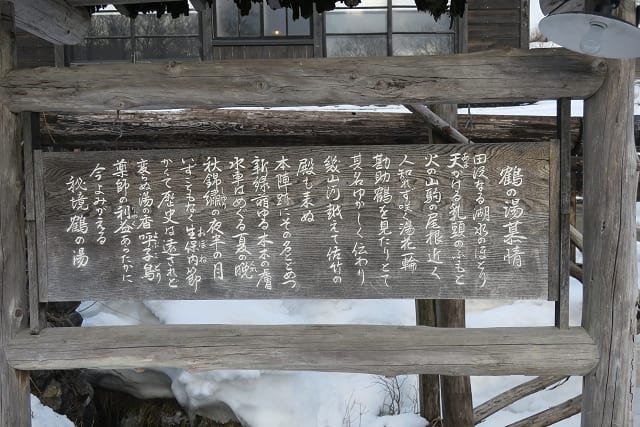 鶴の湯慕情
田沢なる湖水のほとり
天がける乳頭のふもと
火の山駒の屋根近く
人知れず咲く湯花一輪
勘助鶴を見たりとて
其名ゆかしく伝わり
幾山河越えて佐竹の
殿も来ぬ
本陣跡にその名とどめつ
新緑萌ゆる木々の膚
水車はめぐる夏の暁
秋錦織の夜半の月
いずこともなく生保内節
おぼね
かくて歴史は遠されど
変らぬ湯の香呼子鳥
薬師の利益あらたかに
今よみがえる
秘境鶴の湯